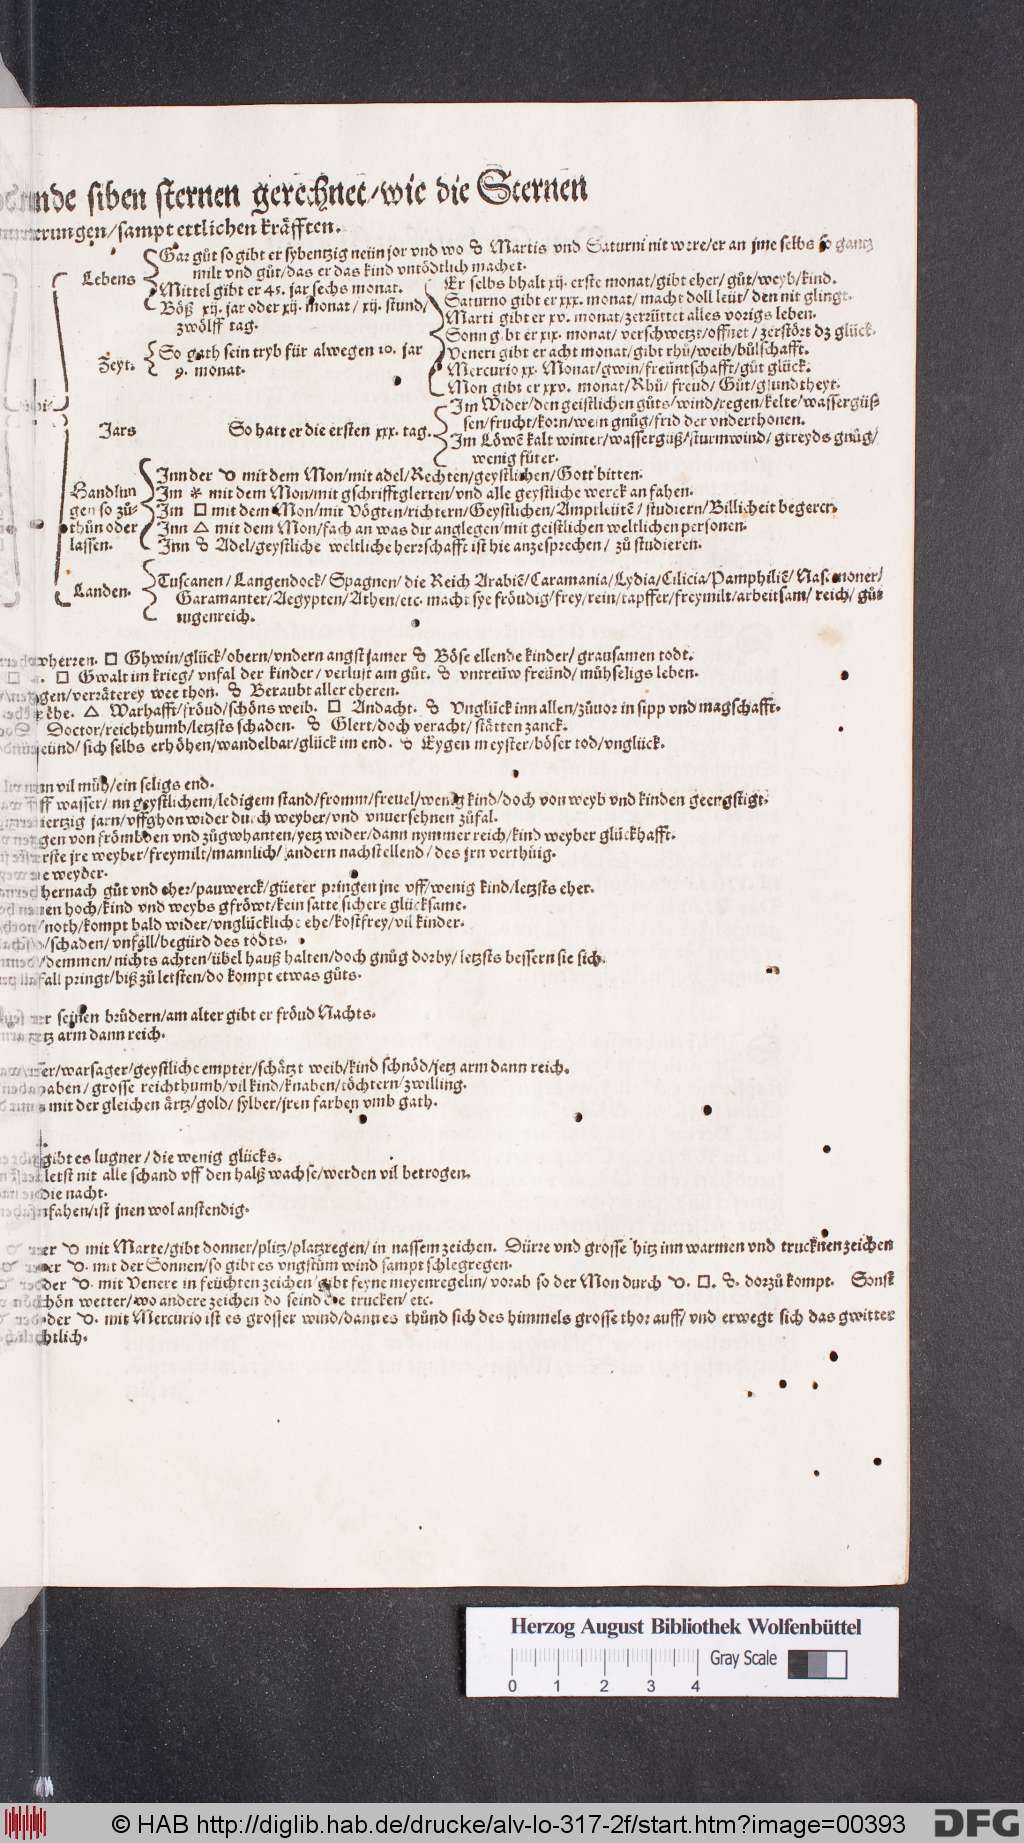 siben sternen gerechnet/wie die Sternen
erungen/sampt ettlichen kräfften.
Lebens
Gar gůt so gibt er sybentzig neün jor vnd wo ☍ Martis vnd Saturni nit were/er an jme selbs so gantz
milt vnd gůt/das er das kind vntödtlich machet.
Mittel gibt er 45. jar sechs monat.
Böß xij. jar oder xij. monat/ xij. stund/
zwölff tag.
Zeyt.
So gath sein tryb für alwegen 10. jar
9. monat.
Er selbs bhalt xij. erste monat/gibt eher/gůt/weyb/kind.
Saturno gibt er xxx. monat/macht doll leüt/ den nit glingt.
Marti gibt er xv. monat/zerrüttet alles vorigs leben.
Sonn gibt er xix. monat/ verschwetzt/offnet/ zerstört dz glück.
Veneri gibt er acht monat/gibt rhů/weib/bůlschafft.
Mercurio xx. Monat/gwin/freüntschafft/gůt glück.
Mon gibt er xxv. monat/Rhů/ freud/ Gůt/gsundtheyt.
Jars
So hatt er die ersten xxx. tag.
Im Wider/den geistlichen gůts/wind/regen/kelte/wassergüß
sen/frucht/korn/wein gnůg/frid der vnderthonen.
Im Löwē kalt winter/wassergüß/sturmwind/ gtreyds gnůg/
wenig fůter.
Handlun
gen so zů-
thůn oder
lassen.
Inn der ☌ mit dem Mon/mit adel/Rechten/geystlichen/Gott bitten.
Im ✶ mit dem Mon/mit gschrifftglerten/vnd alle geystliche werck an fahen.
Im □ mit dem Mon/mit Vögten/richtern/Geystlichen/Amptleütē/ studiern/Billicheit begeren.
Inn △ mit dem Mon/fach an was dir anglegen/mit geistlichen weltlichen personen.
Inn ☍ Adel/geystliche weltliche herrschafft ist hie anzesprechen/ zů studieren.
Landen.
Tuscanen/Langendock/Spagnen/die Reich Arabiē/Caramania/Lydia/Cilicia/Pamphiliē/ Nasamoner/
Garamanter/Aegypten/Athen/etc. macht sye fröudig/frey/rein/tapffer/freymilt/arbeitsam/ reich/ gü-
tugenreich.
herren. □ Ghwin/glück/obern/vndern angst jamer ☍ Böse ellende kinder/ grausamen todt.
□ Gwalt im krieg/ vnfal der kinder/ verlust am gůt. ☍ vntreüw freünd/ mühseligs leben.
gen/verräterey wee thon. ☍ Beraubt aller eheren.
ehe. △ Warhafft/fröud/schöns weib. □ Andacht. ☍ Vnglück inn allen/züuor in sipp vnd magschafft.
Doctor/reichthumb/letzsts schaden. ☍ Glert/doch veracht/ stätten zanck.
sich selbs erhöhen/wandelbar/glück im end. ☍ Eygen meyster/böser tod/vnglück.
vil müh/ein seligs end.
wasser/ inn geystlichem/ledigem stand/fromm/freuel/wenig kind/doch von weyb vnd kinden geengstigt.
jarn/vffghon wider durch weyber/vnd vnuersehnen zůfal.
gen von frömbden vnd zůgwhanten/yetz wider/dann nymmer reich/kind weyber glückhafft.
jre weyber/freymilt/mannlich/ andern nachstellend/ des jrn verthüig.
weyder.
hernach gůt vnd eher/pauwerck/güeter pringen jne vff/wenig kind/letzsts eher.
hoch/kind vnd weybs gfröwt/kein satte sichere glücksame.
noth/kompt bald wider/vnglückliche ehe/kostfrey/vil kinder.
schaden/ vnfall/begürd des todts.
demmen/ nichts achten/übel hauß halten/doch gnůg dorby/ letzsts bessern sie sich.
pringt/biß zů letsten/do kompt etwas gůts.
seinen brüdern/am alter gibt er fröud Nachts.
arm dann reich.
warsager/geystliche empter/schätzt weib/kind schnöd/jetz arm dann reich.
haben/ grosse reichthumb/vil kind/knaben/töchtern/zwilling.
mit der gleichen ärtz/gold/ sylber/jren farben vmb gath.
gibt es lugner/ die wenig glücks.
letst nit alle schand vff den halß wachse/werden vil betrogen.
die nacht.
fahen/ist jnen wol anstendig.
☌ mit Marte/gibt donner/plitz/platzregen/ in nassem zeichen. Dürre vnd grosse hitz inn warmen vnd trucknen zeichen
☌. mit der Sonnen/so gibt es vngstüm wind sampt schlegregen.
der ☌. mit Venere in feüchten zeichen gibt feyne meyenregelin/ vorab so der Mon durch ☌. □. ☍. dorzů kompt. Sonst
schön wetter/ wo andere zeichen do seind die trucken/ etc.
der ☌. mit Mercurio ist es grosser wind/dann es thůnd sich des himmels grosse thor auff/ vnd erwegt sich das gwitter
Herzog August Bibliothek Wolfenbüttel
Gray Scale
0 1 2 3 4
© HAB http://diglib.hab.de/drucke/alv-lo-317-2f/start.htm?image=00393
DFG